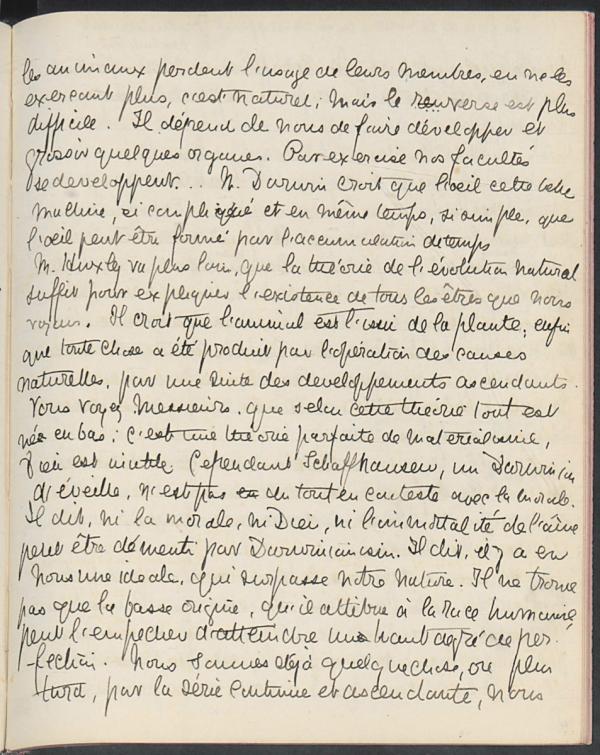 les animaux perdent l'usage de leurs membres, en ne les
exerçant plus, c'est naturel; mais le renverse est plus
difficile. Il dépend de nous de faire développer et
grossir quelques organes. Par exercise nos facultés
se developpent... M. Darwin croit que l'oeil cette belle
machine, si compliqué et en même temps, si simple, que
l'oeil peut être formé par l'accumulation de temps
M. Huxley va plus loin, que la théorie de l'évolution natural
suffit pour expliquer l'existence de tous les êtres que nous
voyons. Il croit que l'animal est l'issu de la plante; enfin
que toute chose a été produit par l'opération des causes
naturelles, par une suite des developpements ascendants.
Vous voyez Messieurs, que selon cette théorie tout est
né en bas; c'est une théorie parfaite de materialisme,
Dieu est inutile. Cependant Schaffhausen, un Darwinien
d'éveille, n'est pas du tout en conteste avec la morale.
Il dit, ni la morale, ni Dieu, ni l'immortalité de l'âme
peut être démenti par Darwinianism. Il dit, il y a en
nous une ideale, qui surpasse notre nature. Il ne trouve
pas que la basse origine, qu'il attibue à la race humaine,
peut l'empecher d'atteindre un haut degré de per-
fection. Nous sommes déjà quelque chose, ou plus
tard, par la série continue et ascendante, nous